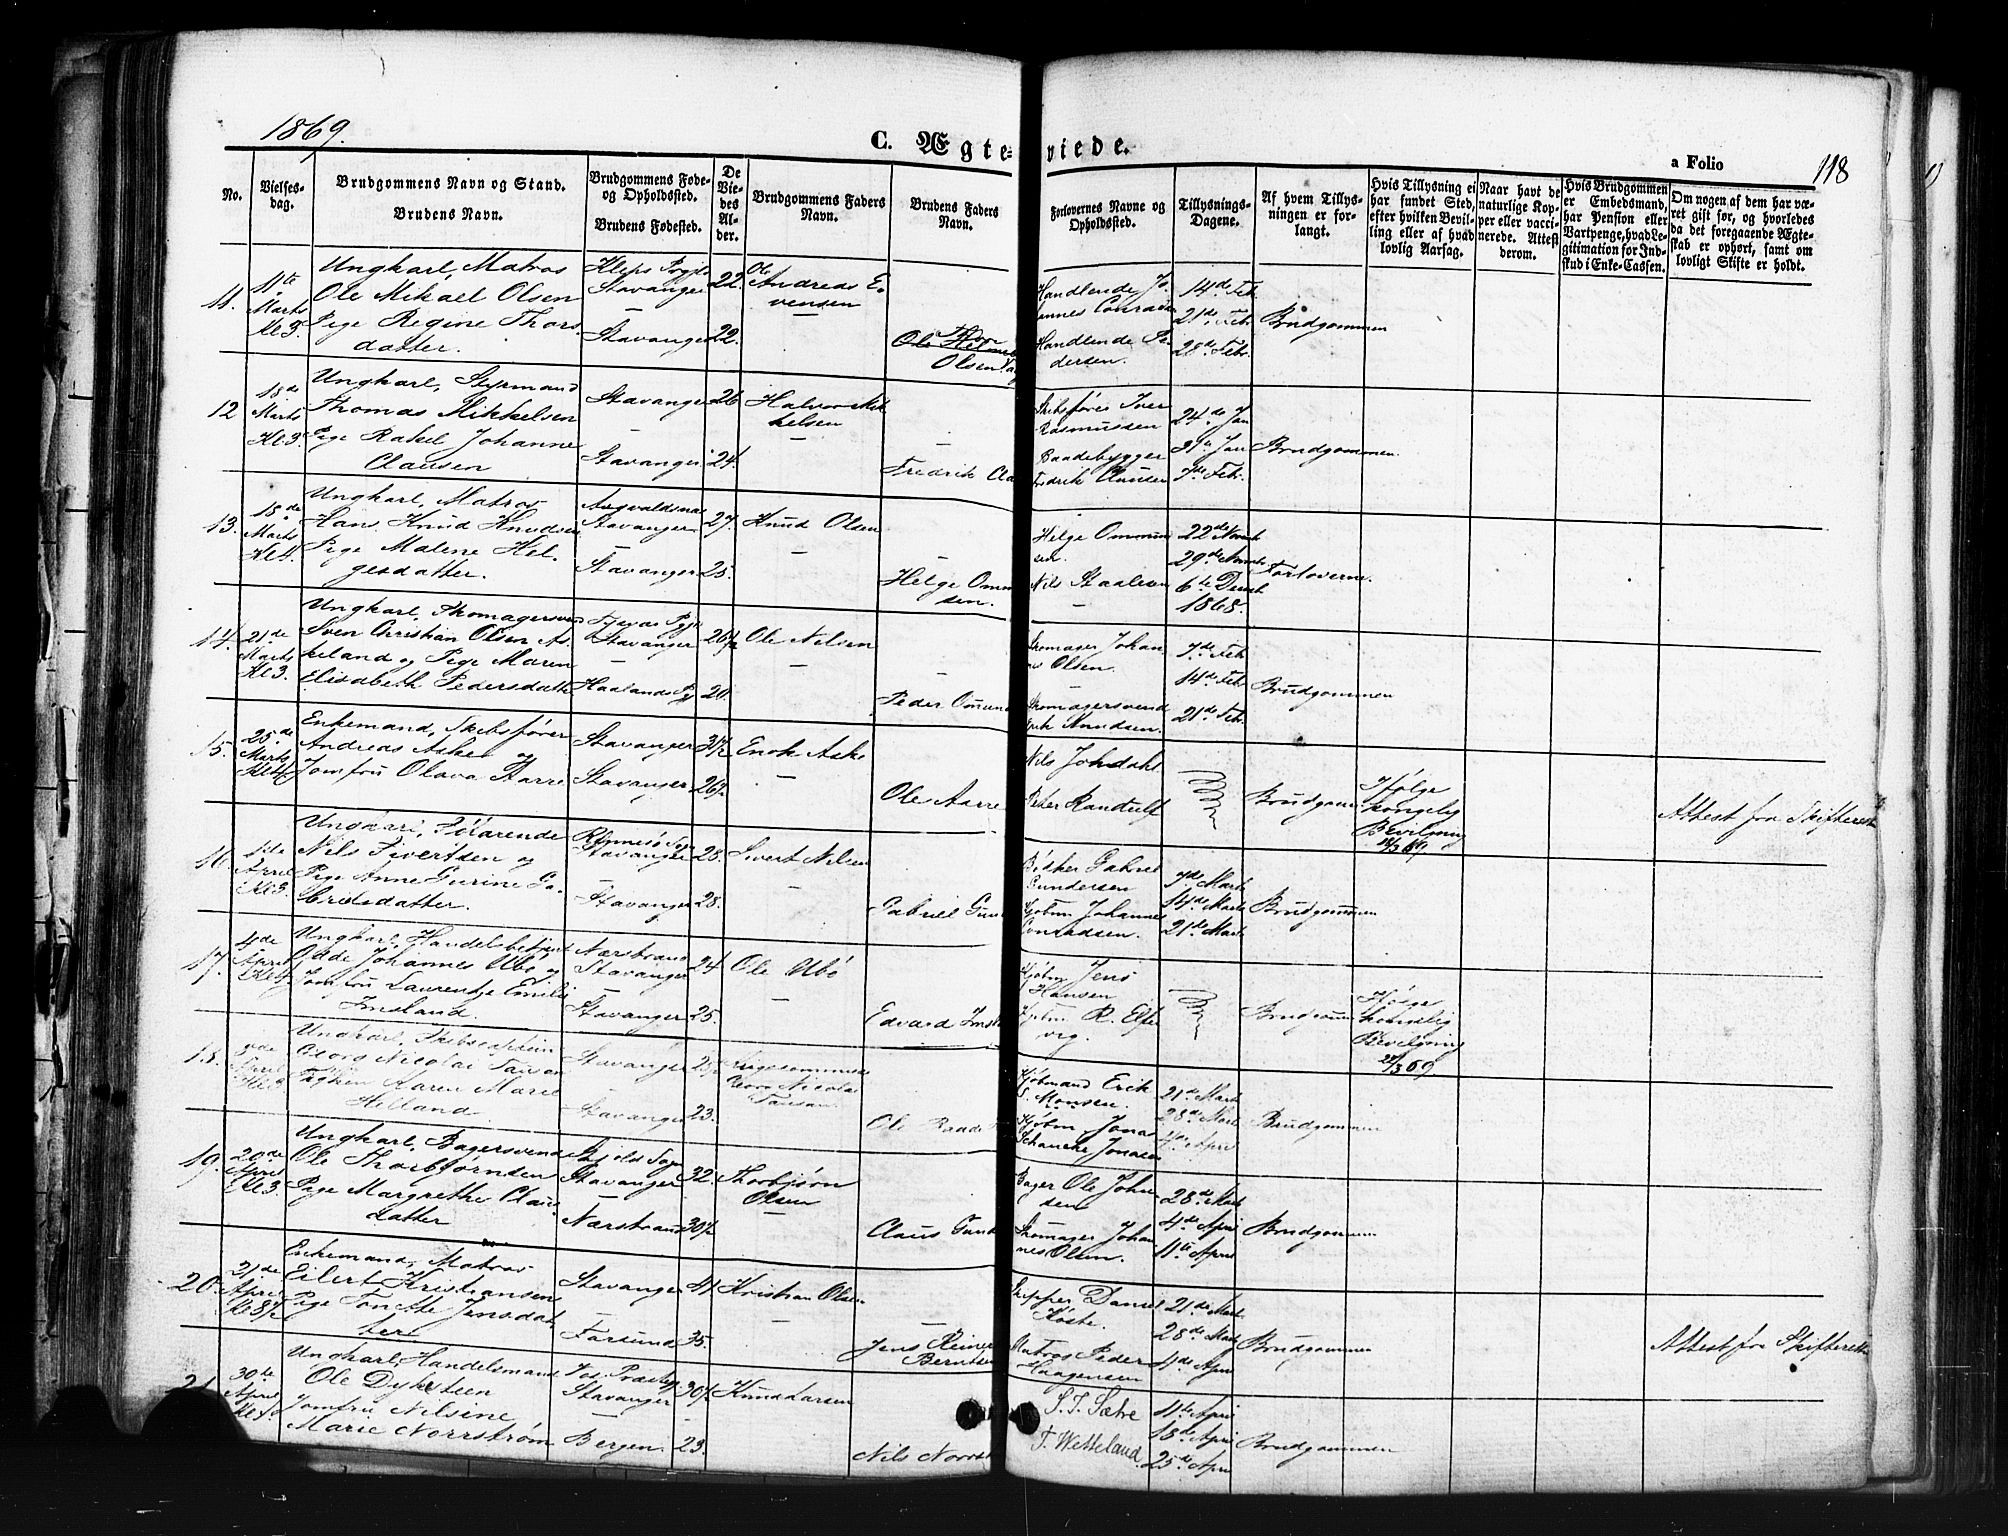 1869.
C. Ægteviede.
a Folio
118
No.
Vielses-
dag.
Brudgommens Navn og Stand.
Brudens Navn.
Brudgommens Føde-
og Opholdssted.
Brudens Fødested.
De
Vie-
des
Al-
der.
Brudgommens Faders
Navn.
Brudens Faders
Navn.
Forlovernes Navne og
Opholdssted.
Tillysnings-
Dagene.
Af hvem Tillys-
ningen er for-
langt.
Hvis Tillysning ei
har fundet Sted,
efter hvilken Bevil-
ling eller af hvad
lovlig Aarsag.
Naar havt de
naturlige Kop-
per eller vacci-
nerede. Attest
derom.
Hvis Brudgommen
er Embedsmand,
har Pension eller
Vartpenge, hvad Le-
gitimation for Ind-
skud i Enke-Cassen.
Om nogen af dem har væ-
ret gift før, og hvorledes
da det foregaaende Ægte-
skab er ophørt, samt om
lovligt Skifte er holdt.
11.
11te
Marts
Kl 3.
Ungkarl, Matros
Ole Mikael Olsen
Pige Regine Thors
datter.
Stavanger
Stavanger
22.
22.
Ole
Andreas E
vensen
Olsen
Handlende Jo
hannes Conradsen
Handlende Pe
dersen.
14de Feb
21de Feb.
28de Feb.
Brudgommen
12
18de
Marts
Kl 3.
Ungkarl, Styrmand
Thomas Mikkelsen
Pige Rakel Johanne
Clausen
Stavanger
Stavanger
26
24.
Halvor Mik
kelsen
Fredrik Cla
Skibsfører Iver
Rasmussen
Baadebygger
Fredrik Clausen
24de Jan
31te Jan
7de Feb.
Brudgommen
13.
18de
Marts
Kl 4.
Ungkarl, Matros
Hans Knud Knudsen
Pige Malene Hel-
gesdatter.
Augvaldsnæs
Stavanger
Stavanger
27.
25.
Knud Olsen
Helge Omm
sen.
Helge Ommun
sen.
Nils Staalesen
22de Novb
29de Novb
6te Decb
1868.
Forloverne.
14.
21de
Marts
Kl 3.
Ungkarl, Skomagersvend
Sven Christian Olsen As
keland og Pige Maren
Elisabeth Pedersdatte
Stavanger
Haalands Pgj
26½
20.
Ole Nilsen
Peder Omund
Skomager Johan
nes Olsen.
Skomagersvend
Knudsen.
7de Feb
14de Feb
21de Feb.
Brudgommen
15.
25de
Marts
Kl 4½
Enkemand, Skibsfører
Andreas Aske og
Jomfru Olava Aarre
Stavanger
Stavanger
31½
26½
Enok Aske
Ole Aarre
Nils Johdahl
Peter Randulf
Brudgom
Ifølge
kongelig
Bevilgning
18/3 69
Attest fra Skifteret
16.
1ste
April
Kl 3
Ungkarl, Søfarende
Nils Sivertsen og
Pige Anne Gurine Ga-
brielsdatter.
Rennesø Sogn
Stavanger
Stavanger
28.
28.
Sivert Nilsen
Gabriel Gund
Bødker Gabriel
Gundersen
Kjøbm Johannes
Conradsen.
7de Marts
14de Marts
21de Marts
Brudgommen
17.
4de
April
Kl 4½
Ungkarl, Handelsbetjent
Odde Johannes Ubø og
Jomfru Laurentze Emilie
Imsland.
Nærstrand
Stavanger
Stavanger
24
25.
Ole Ubø
Edvard Imsl
Kjøbm Jens
Hansen
Kjøbm R. Elfe
vig.
Brudgom
Ifølge
kongelig
Bevilgning
22/3 69
18.
April
Ungkarl, Skibscaptein
Georg Nicolai Tausan
Frøken Karen Marie
Helland
Stavanger
Stavanger
23.
Georg Nicolai
Tausan
Ole Raade
Kjøbmand Erik
S. Monsen.
Kjøbm Jonas
Schancke Jonasen
21de Marts
28de Marts
4de April
Brudgommen
19.
20de
April
Kl 3.
Ungkarl, Bagersvend
Ole Thorbjørnsen
Pige Margrethe Claus
datter
Skjold Sogn
Stavanger
Nærstrand
32.
30½
Thorbjørn
Olsen
Claus Gund
Bager Ole John
sen
Skomager Johan
nes Olsen.
28de Marts
4de April
11te April
Brudgommen
20.
21de
April
Kl 8½
Enkemand, Matros
Eilert Kristiansen
Pige Tonette Jensdat
ter
Stavanger
Farsund
41
35.
Kristian Olsen
Jens Reiner
Berntsen
Skipper Daniel
Køste.
Matros Peder
Haagensen
21de Marts
28de Marts
4de April
Brudgommen
Attest fra Skifterette
21.
30te
April
Ungkarl, Handelsmand
Ole Dyksteen
Jomfru Nilsine
Marie Norrstrøm
Vos Præstegj
Stavanger
Bergen.
30½
23.
Knud Larsen
Nils Norrst
S. T. Sætre
T. Wetteland.
11te April
18de April
25de April
Brudgommen